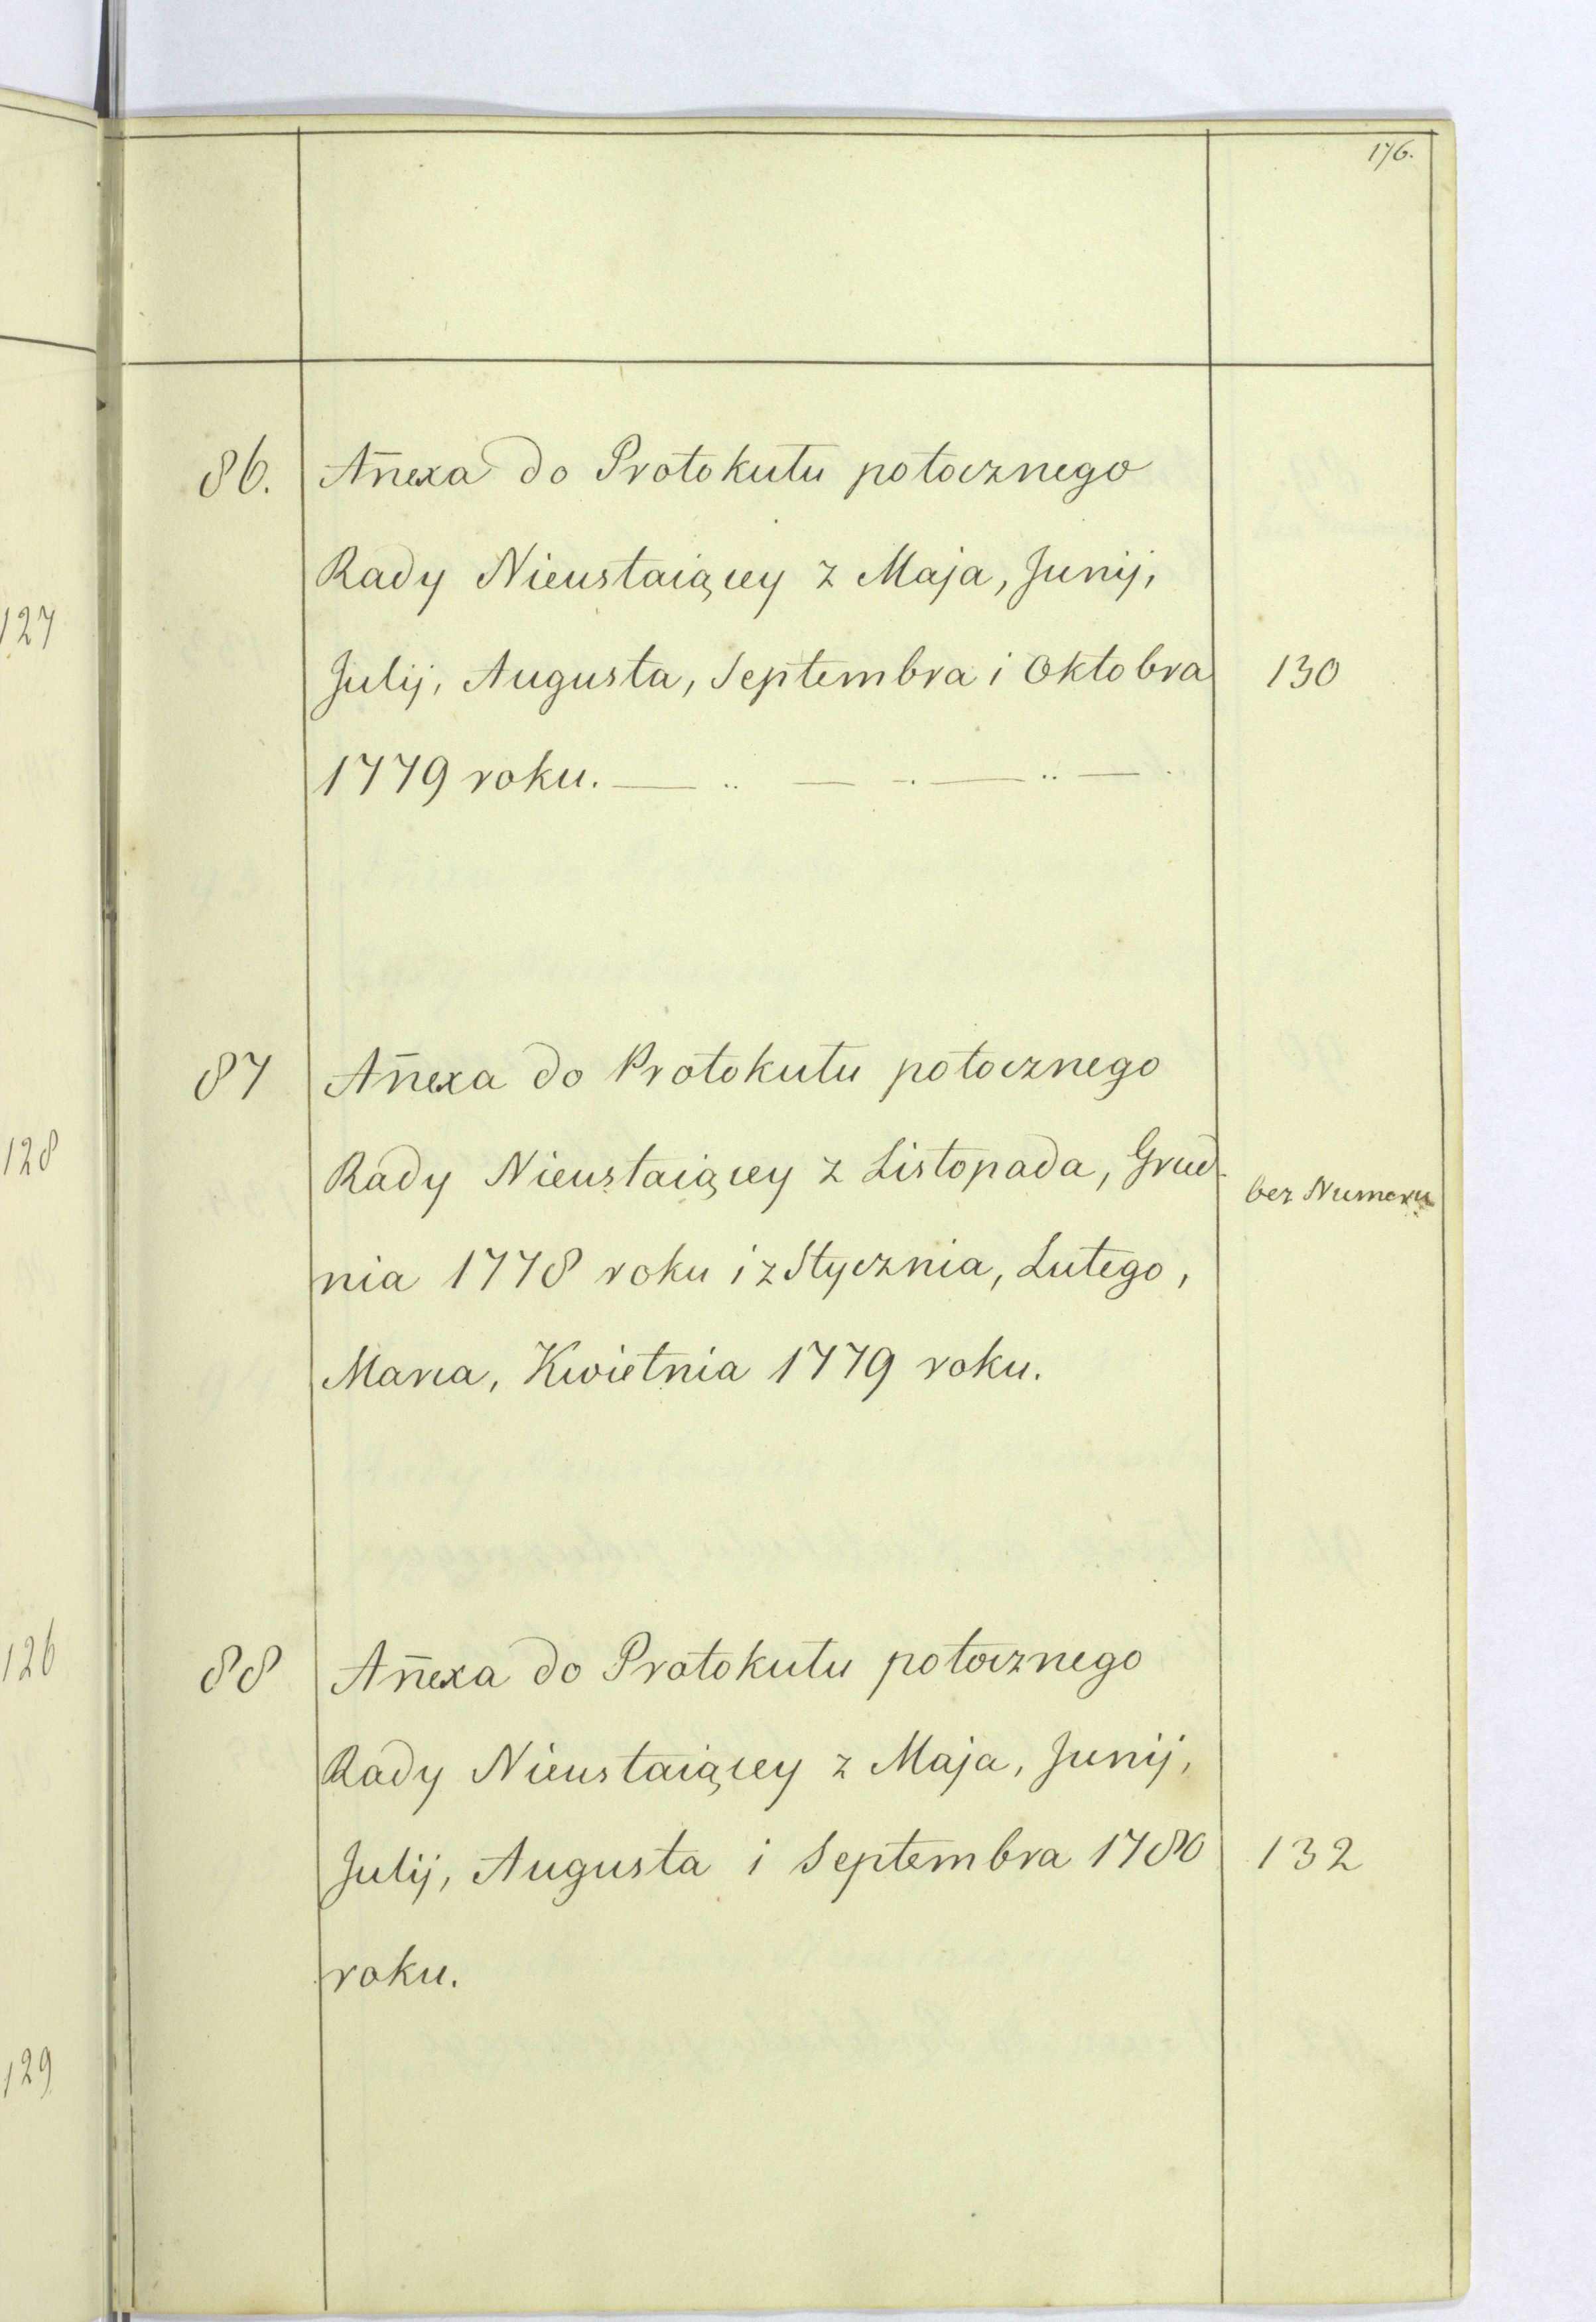 176.
86. Añexa do Protokułu potocznego
Rady Nieustaiącey z Maja, Junij,
Julij, Augusta, Septembra i Oktobra 130
1779 roku.
87 Añexa do Protokułu potocznego
Rady Nieustaiącey z Listopada, Grud-
bez Numeru
nia 1778 roku i z Stycznia, Lutego,
Marca, Kwietnia 1779 roku.
88 Añexa do Protokułu potocznego
Rady Nieustaiącey z Maja, Junij,
Julij, Augusta i Septembra 1780 132
roku.
127
128
126
129